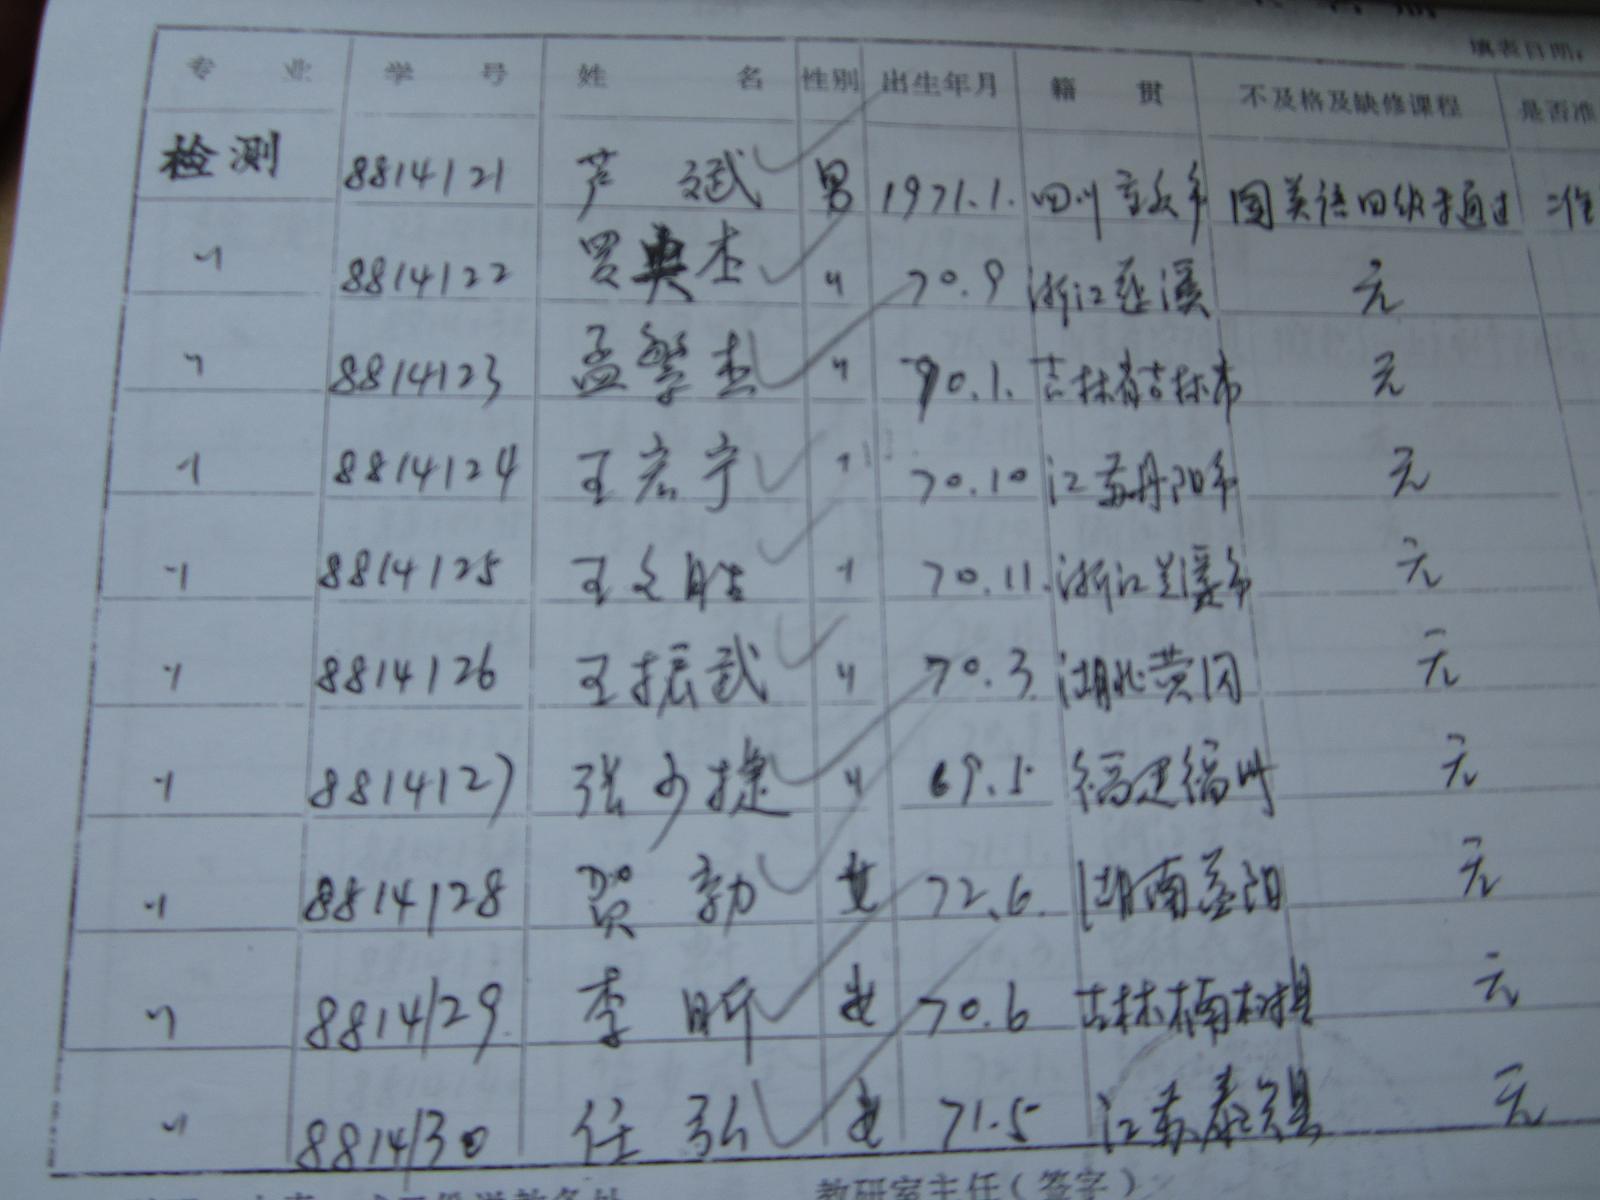 填表日期:
专 业 学 号 姓 名 性别 出生年月 籍 贯 不及格及缺修课程 是否准
检测 8814121 芦斌 男 1971.1. 四川重庆市 国英语四级未通过 准
〃 8814122 罗典杰 〃 70.9 浙江慈溪 无
〃 8814123 孟繁杰 〃 70.1. 吉林省吉林市 无
〃 8814124 王宏宁 〃 70.10 江苏丹阳市 无
〃 8814125 王文胜 〃 70.11. 浙江兰溪市 无
〃 8814126 王振武 〃 70.3 湖北黄冈 无
〃 8814127 张少捷 〃 69.5 福建福州 无
〃 8814128 贺勃 女 72.6. 湖南益阳 无
〃 8814129. 李昕 女 70.6 吉林 无
〃 8814130 任弘 女 71.5 江苏泰兴县 无
教研室主任(签字)